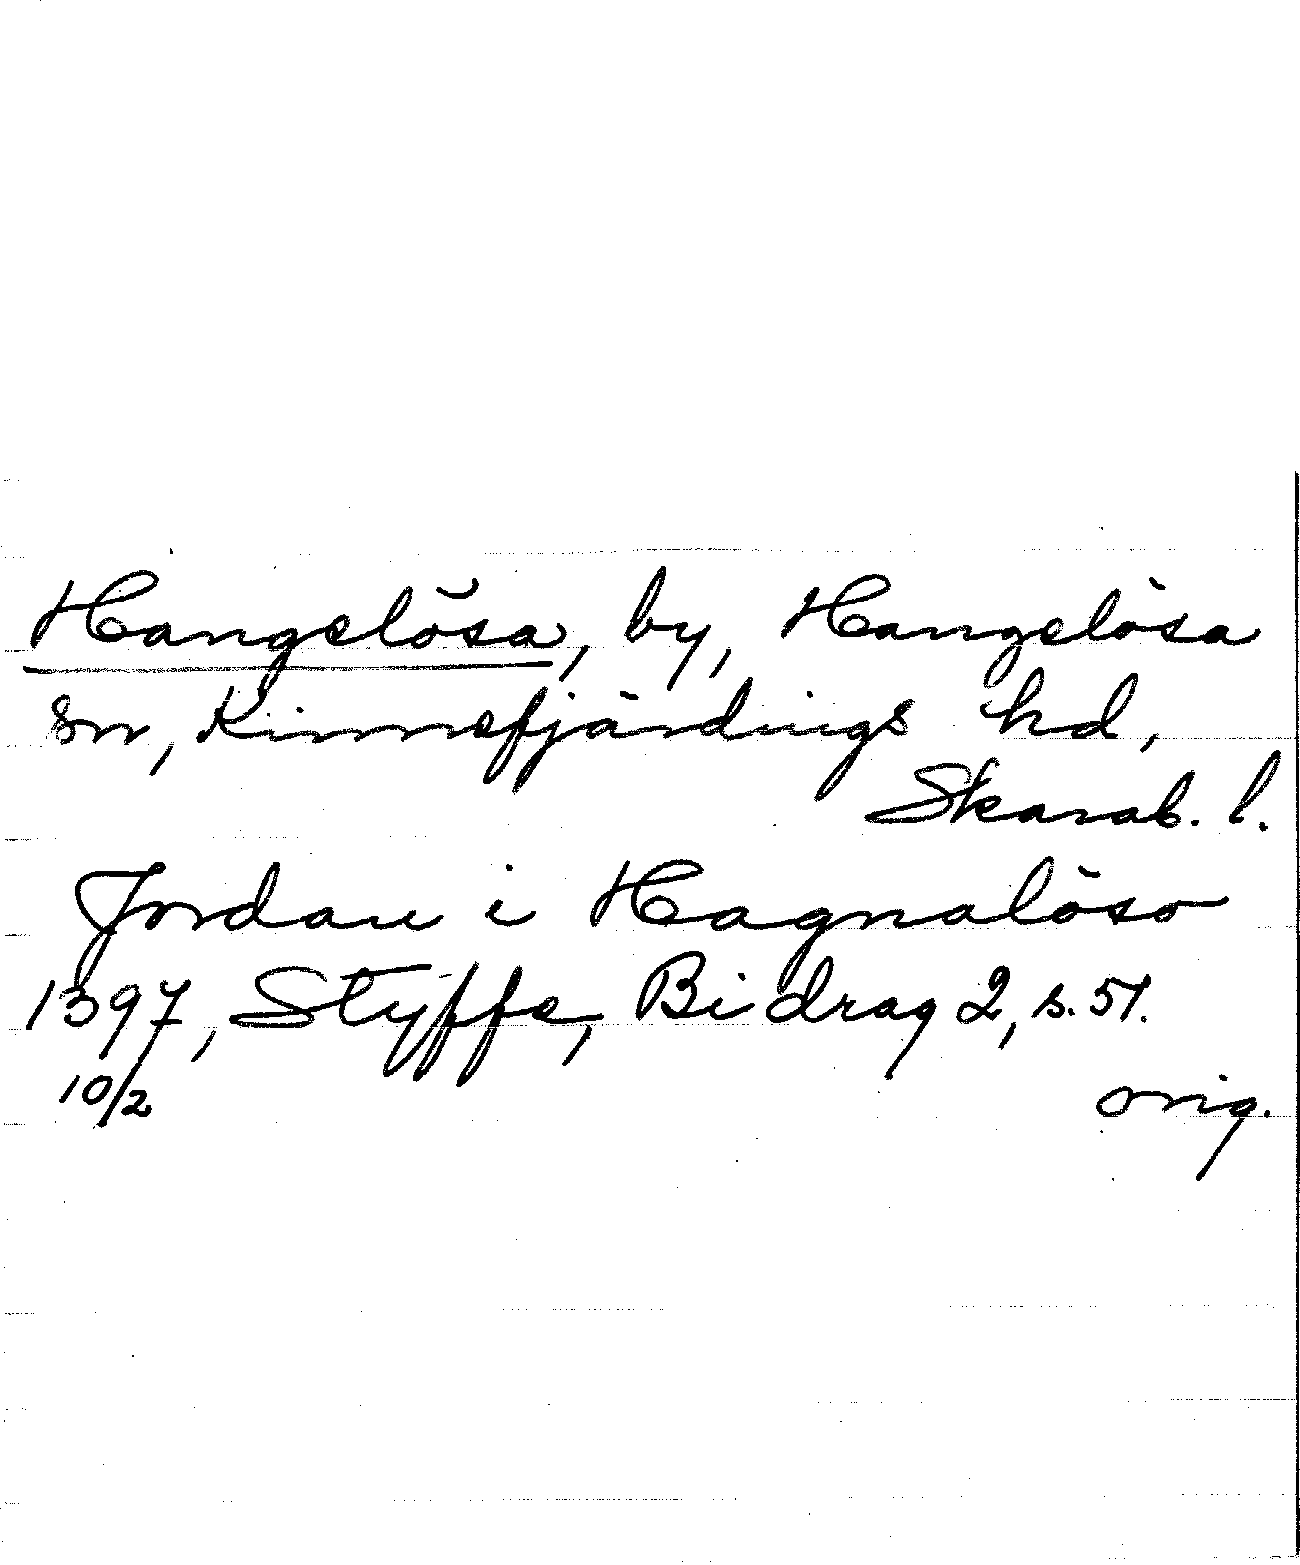 Hangelösa, by, Hangelösa
sn, Kinnefjärdings hd,
Skarab. l.
Jordan i Hagnalöso
1397, Styffe, Bidrag 2, s. 51.
10/2 orig.